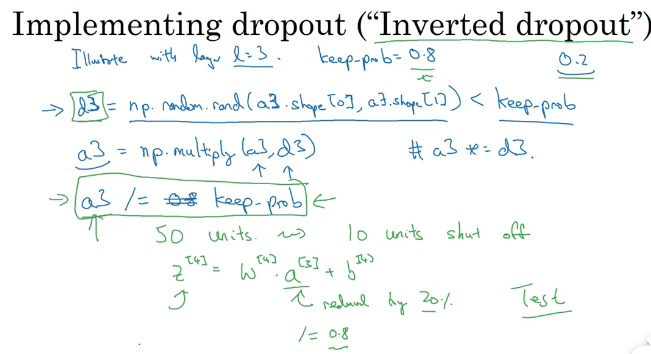 Implementing dropout ("Inverted dropout")
Illustrate with layer l=3. keep-prob = 0.8 0.2
→ d3 = np.random.rand(a3.shape[0], a3.shape[1]) < keep-prob
a3 = np.multiply(a3, d3) # a3 *= d3.
→ a3 /= 0.8 keep-prob ←
50 units. ⇝ 10 units shut off
z^[4] = W^[4] · a^[3] + b^[4]
reduced by 20% Test
/= 0.8